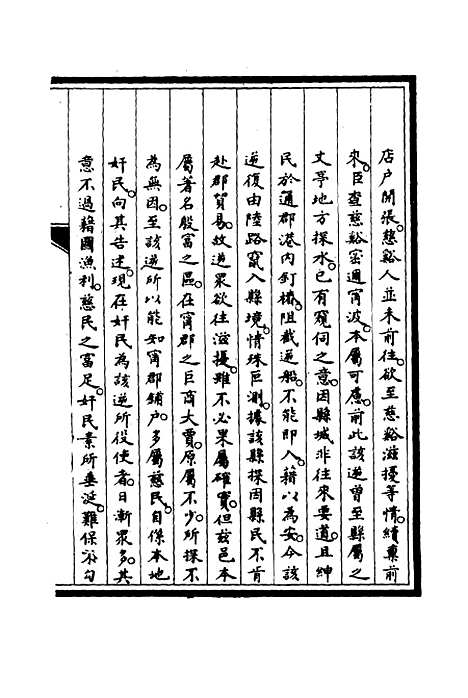 店户開張慈谿人並未前往欲至慈谿滋擾等情續稟前
來臣查慈谿密邇甯波本屬可慮前此該逆曾至縣屬之
丈亭地方探水已有窺伺之意因縣城非往來要道且紳
民於通郡港内釘樁阻截逆船不能即入藉以為安今該
逆復由陸路竄入縣境情殊叵測據該縣探因縣民不肯
赴郡貿易故逆眾欲往滋擾雖不必果屬確實但茲邑本
屬著名殷富之區在甯郡之巨商大賈原屬不少所探不
為無因至該逆所以能知甯郡鋪户多屬慈民自係本地
奸民向其告述現在奸民為該逆所役使者日漸眾多其
意不過藉圖漁利慈民之富足奸民素所垂涎難保不勾